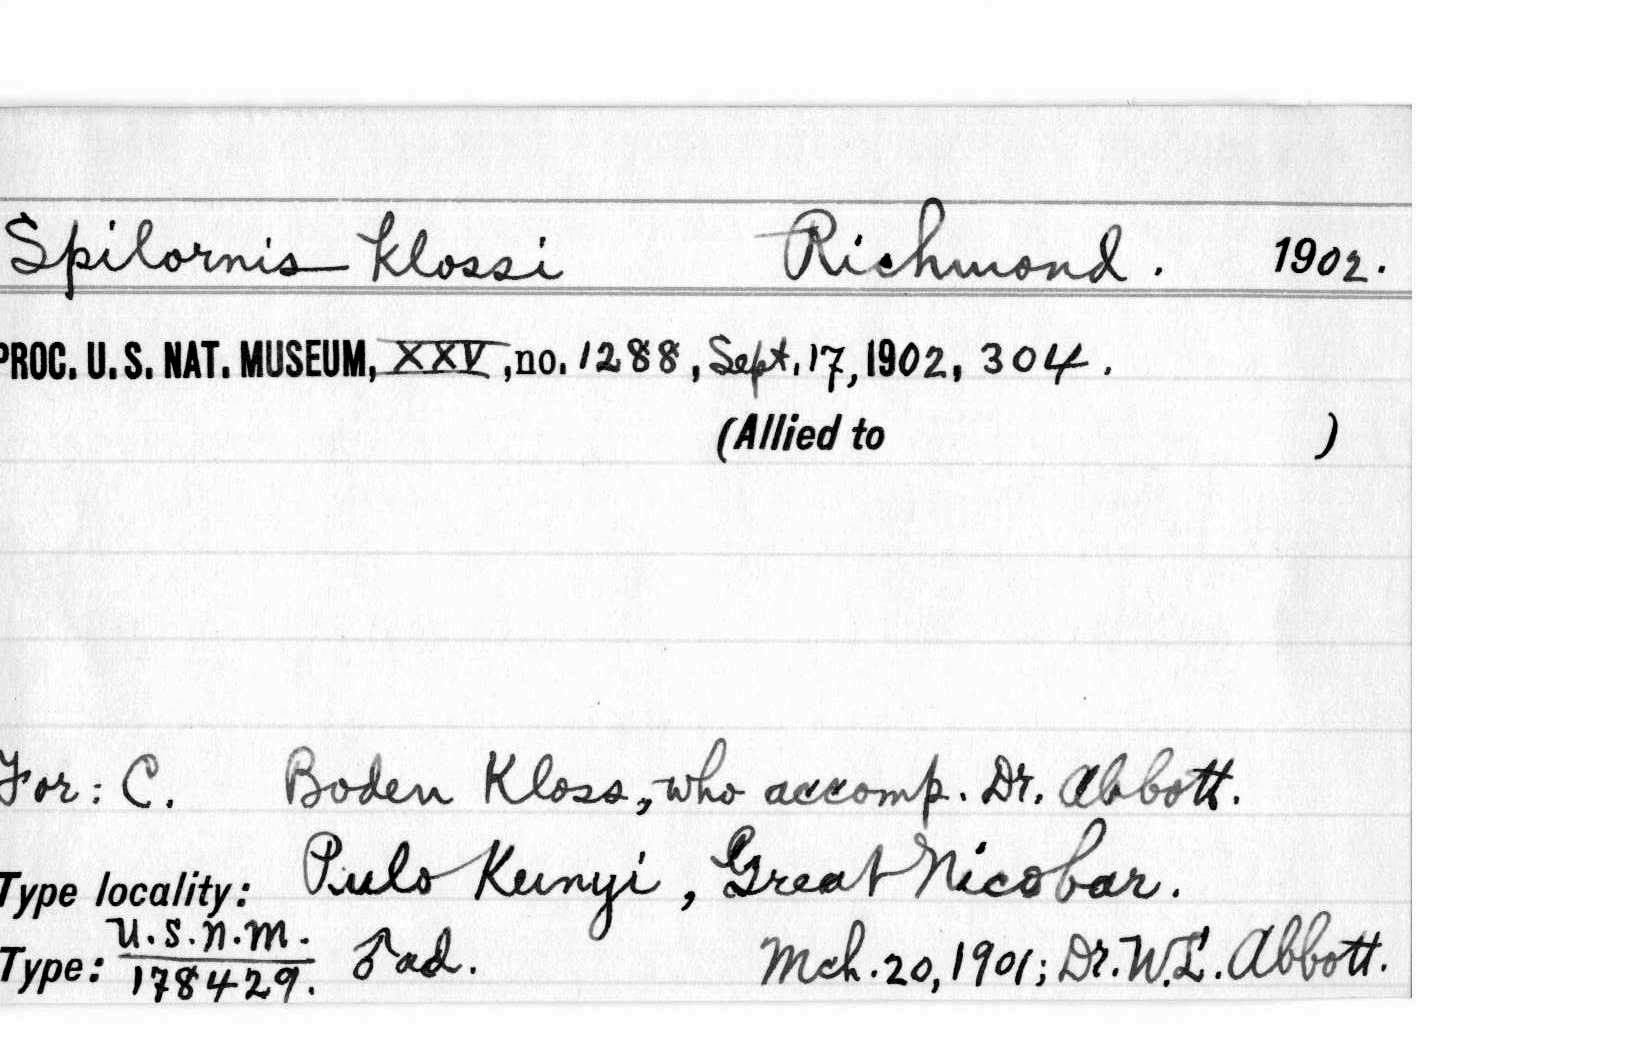 Spilornis klossi Richmond. 1902.
PROC. U. S. NAT. MUSEUM, XXV, no. 1288, Sept. 17, 1902, 304.
(Allied to )
For: C. Boden Kloss, who accomp. Dr. Abbott.
Type locality: Pulo Kunyi, Great Nicobar.
U.S.N.M.
Type: 178429. ♂ ad. Mch. 20, 1901; Dr. W.L. Abbott.